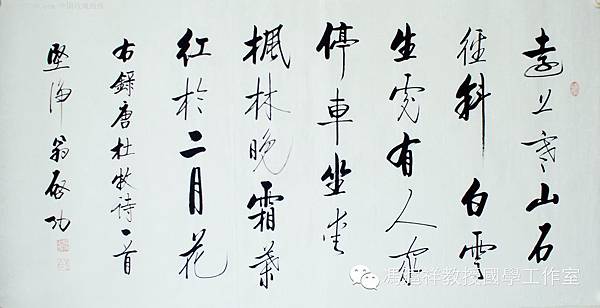 遠上寒山石
徑斜白雲
生處有人家
停車坐愛
楓林晚霜葉
紅於二月花
右錄唐杜牧詩一首
堅淨翁啟功
祥教授國學工作室